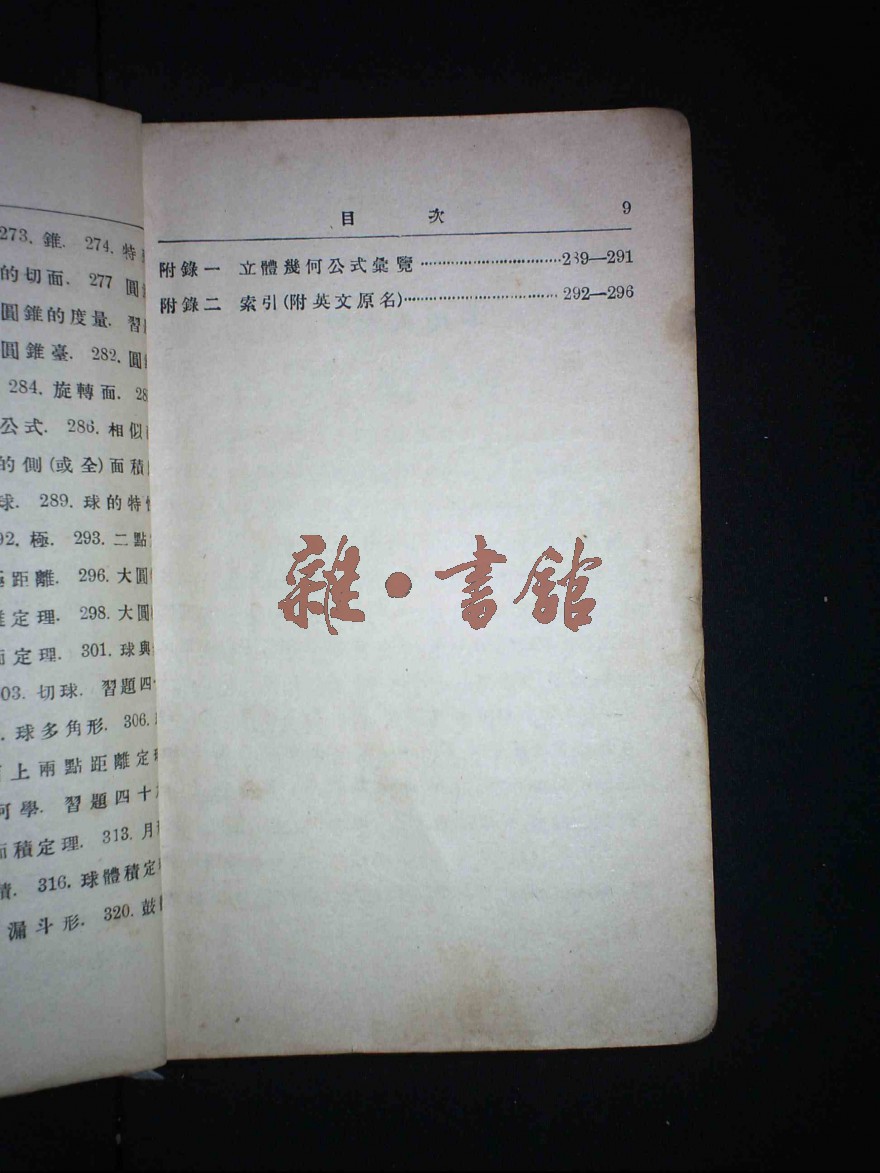 273. 錐. 274. 特
的切面. 277 圓
圓錐的度量. 習
圓錐臺. 282. 圓
284. 旋轉面. 28
公式. 286. 相似
的側(或全)面積
球. 289. 球的特
92. 極. 293. 二點
距離. 296. 大圓
定理. 298. 大圓
定理. 301. 球與
03. 切球. 習題四
. 球多角形. 306.
上兩點距離定
何學. 習題四十
面積定理. 313. 月
積. 316. 球體積定
漏斗形. 320. 鼓
目 次 9
附錄一 立體幾何公式彙覽 ⋯⋯⋯⋯⋯⋯ 289—291
附錄二 索引(附英文原名) ⋯⋯⋯⋯⋯⋯ 292—296
雜·書館